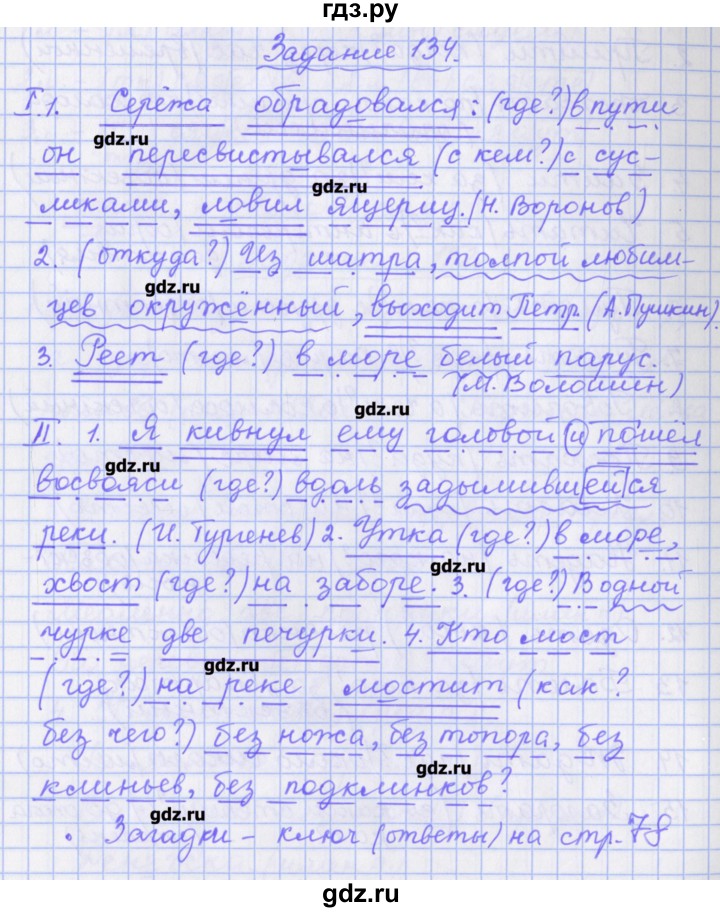 гдз.ру
Задание 134.
I. 1. Серёжа обрадовался: (где?) в пути
gdz.ru
он пересвистывался (с кем?) с сус-
gdz.ru
ликами, ловил ящериц. (Н. Воронов)
2. (откуда?) Из шатра, толпой любим-
gdz.ru
цев окружённый, выходит Петр. (А. Пушкин).
3. Реет (где?) в море белый парус.
(М. Волошин)
gdz.ru
II. 1. Я кивнул ему головой и пошёл
gdz.ru
восвояси (где?) вдоль задымившейся
реки. (И. Тургенев) 2. Утка (где?) в море,
gdz.ru
хвост (где?) на заборе. 3. (где?) В одной
чурке две печурки. 4. Кто мост
gdz.ru
(где?) на реке мостит (как?
без чего?) без ножа, без топора, без
gdz.ru
клиньев, без подклинков?
gdz.ru
• Загадки – ключ (ответы) на стр. 78
gdz.ru